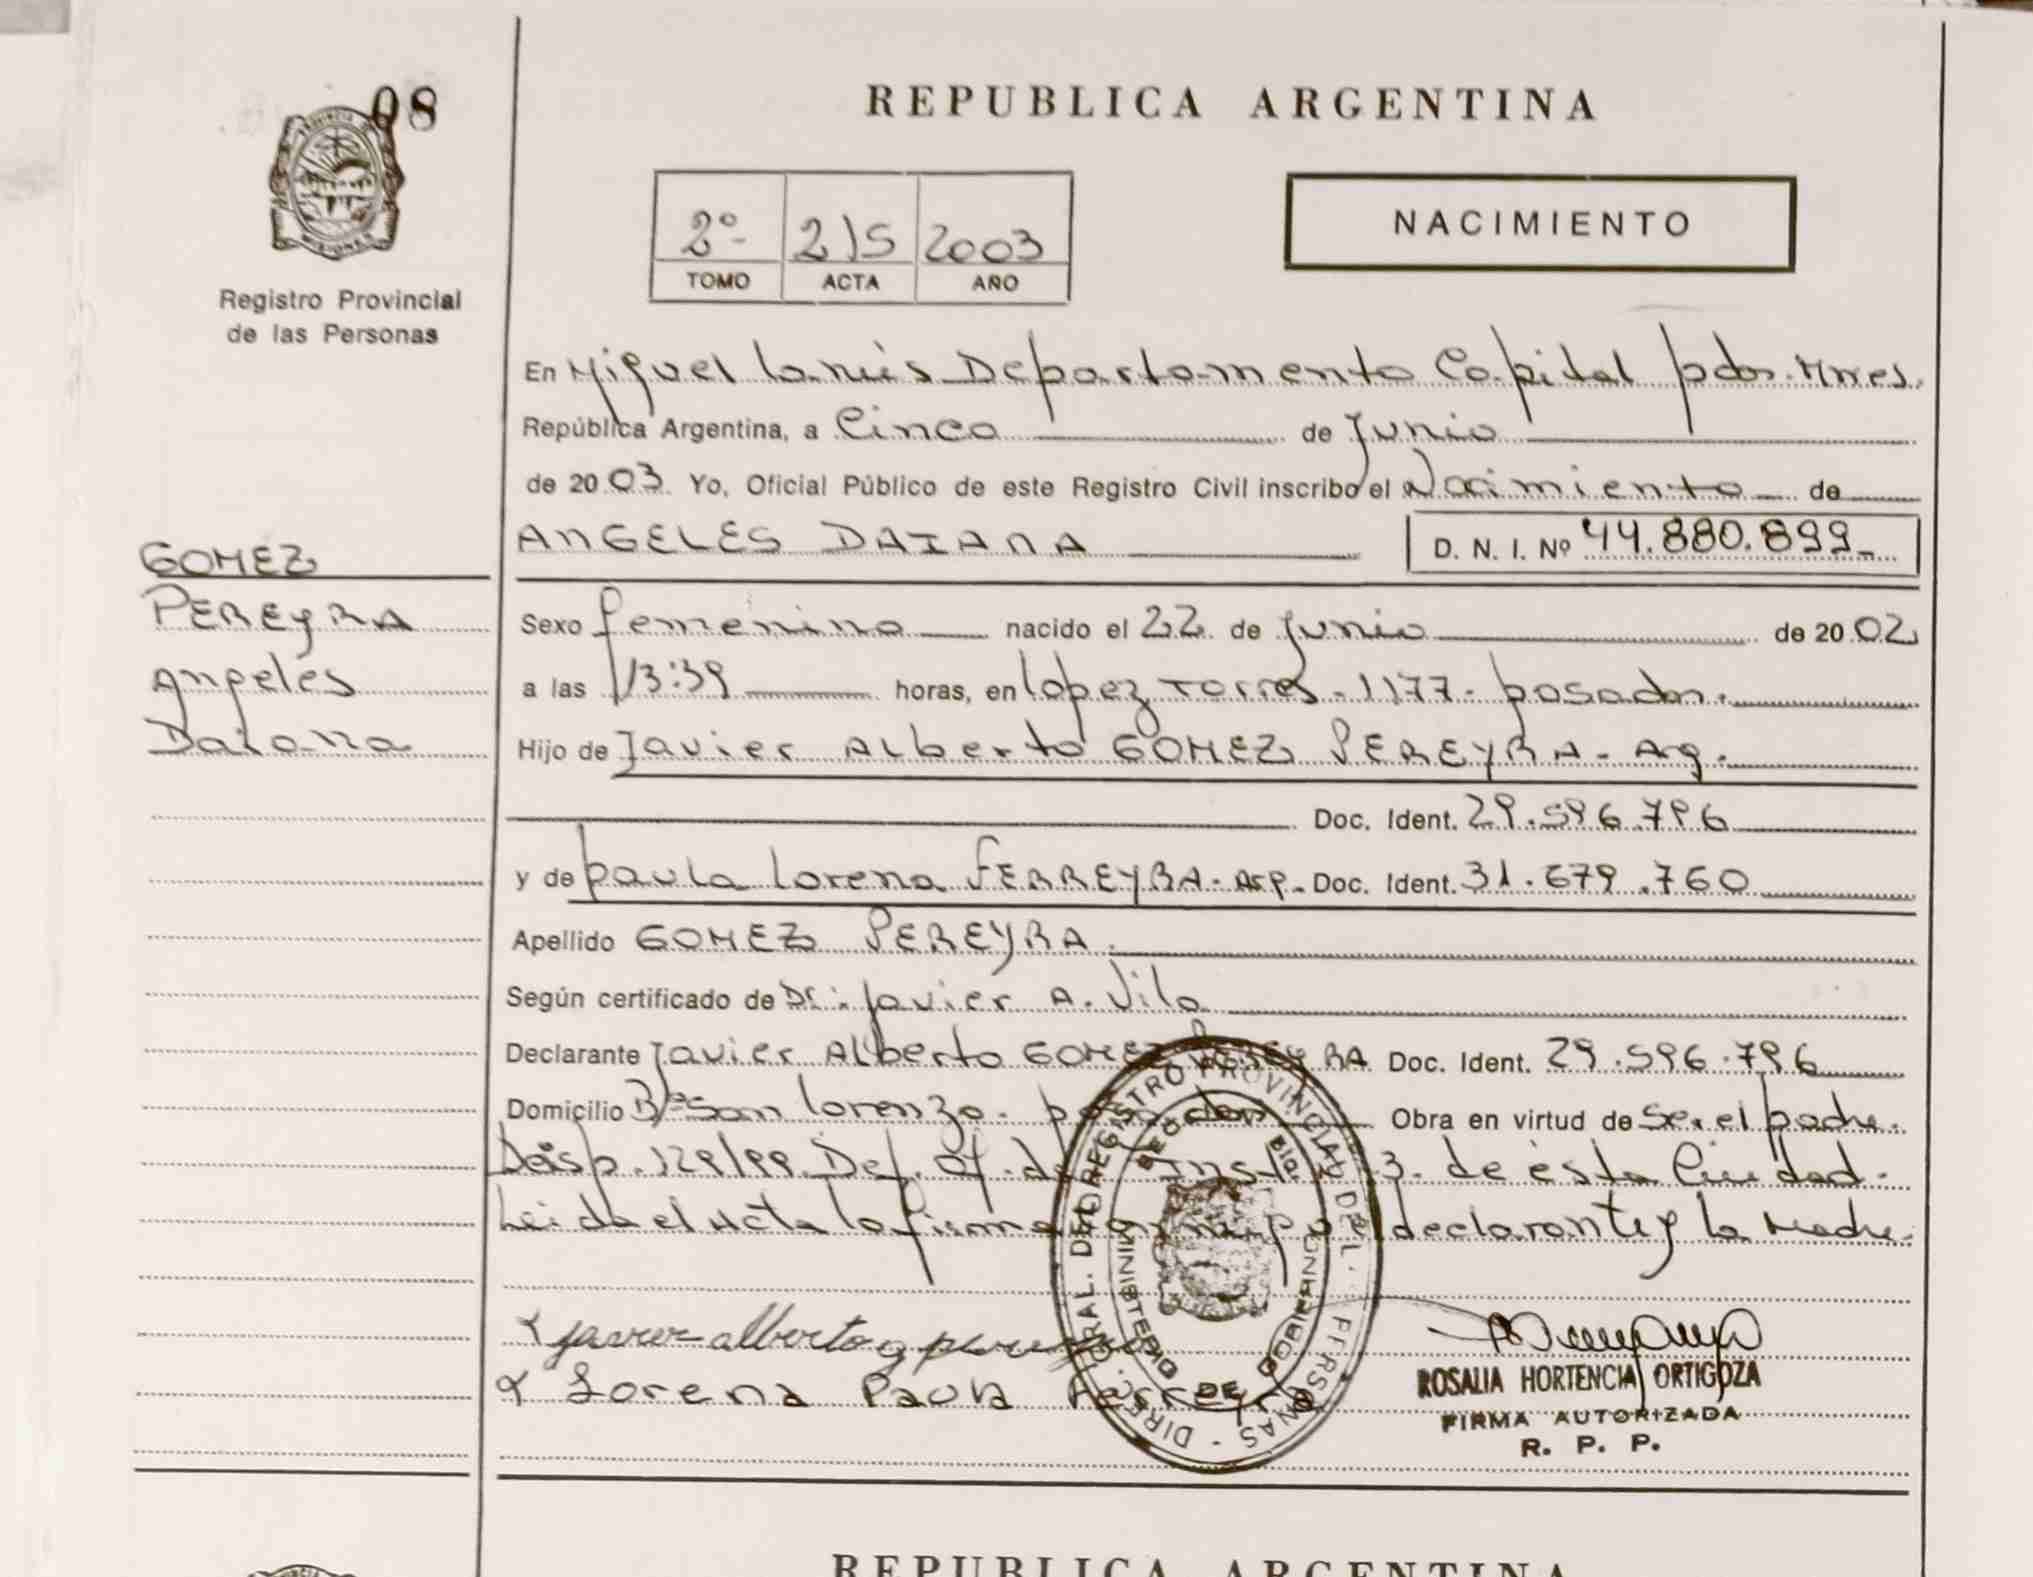 08
REPUBLICA ARGENTINA
PROVINCIA
MISIONES
Registro Provincial
de las Personas
2º 215 2003
TOMO ACTA AÑO
NACIMIENTO
En Miguel Lanús Departamento Capital pdas. Mnes.
República Argentina, a Cinco de Junio
de 2003. Yo, Oficial Público de este Registro Civil inscribo el Nacimiento de
ANGELES DAIANA D. N. I. Nº 44.880.899
GOMEZ
PEREYRA
Angeles
Daiana
Sexo femenino nacido el 22 de Junio de 2002
a las 13:39 horas, en Lopez Torres - 1177 - posadas.
Hijo de Javier Alberto GOMEZ PEREYRA - Arg.
Doc. Ident. 29.596.796
y de paula Lorena FERREYRA - Arg. Doc. Ident. 31.679.760
Apellido GOMEZ PEREYRA.
Según certificado de Dr: Javier A. Vila
Declarante Javier Alberto GOMEZ PEREYRA Doc. Ident. 29.596.796
Domicilio Bº San Lorenzo. posadas Obra en virtud de Ser el padre.
Disp. 129/99. Def. Of. de Inst. 3. de esta Ciudad.
Leida el Acta la firman por el declarante y la Madre.
Javier alberto g
Lorena Paola Ferreyra
DIREC. GRAL. DEL REGISTRO PROVINCIAL DE L. PERSONAS
MINISTERIO DE GOBIERNO
ROSALIA HORTENCIA ORTIGOZA
FIRMA AUTORIZADA
R. P. P.
REPUBLICA ARGENTINA